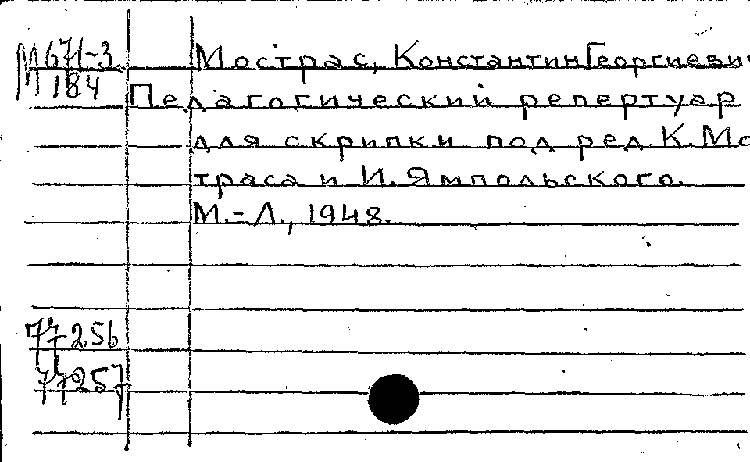 М671-3
184
Мострас, Константин Георгиевич
Педагогический репертуар
для скрипки под ред. К. Мо
траса и И. Ямпольского.
М.-Л., 1948.
77256
77257